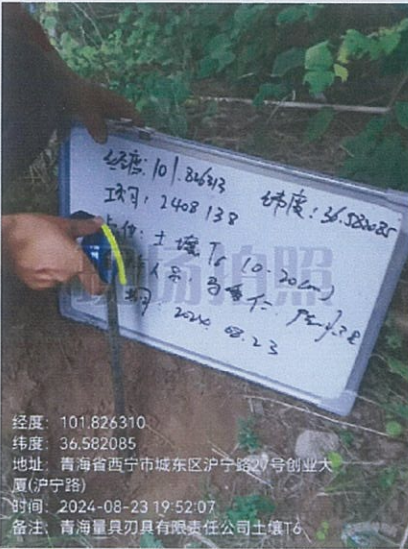 经度:101.826313 纬度:36.582085
项目:2408138
点位:土壤T6(0-20cm)
2024.08.23
现场拍照
经度:101.826310
纬度:36.582085
地址:青海省西宁市城东区沪宁路27号创业大
厦(沪宁路)
时间:2024-08-23 19:52:07
备注:青海量具刃具有限责任公司土壤T6